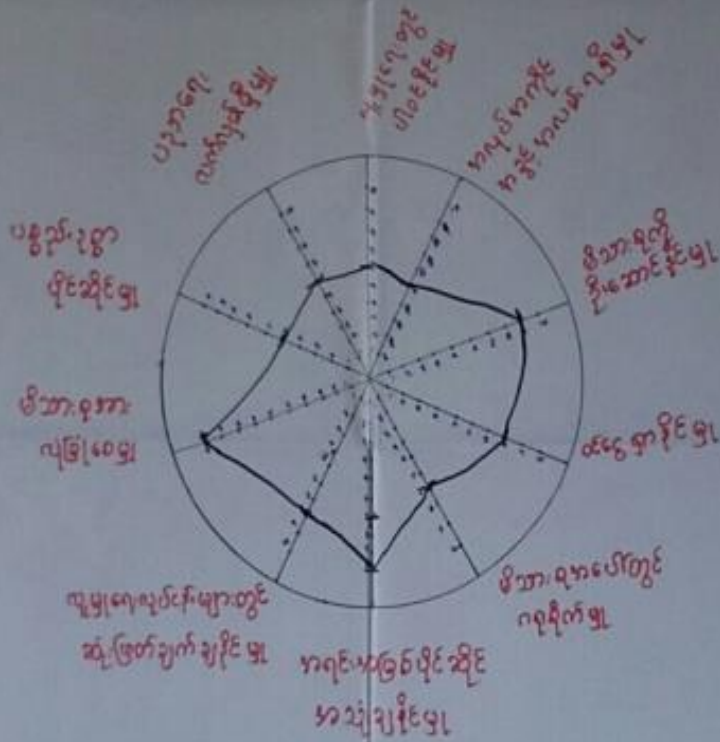 ပညာရေး
လက်လှမ်းမှီမှု
ပါဝင်နိုင်မှု
အလုပ်အကိုင်
အခွင့်အလမ်းရရှိမှု
မိသားစုကို
ဦးဆောင်နိုင်မှု
ဝင်ငွေရှာနိုင်မှု
မိသားစုအပေါ်တွင်
ဂရုစိုက်မှု
အရင်းအမြစ်ပိုင်ဆိုင်
အသုံးချနိုင်မှု
လူမှုရေးလုပ်ငန်းများတွင်
ဆုံးဖြတ်ချက်ချနိုင်မှု
မိသားစုအား
လုံခြုံစေမှု
ပစ္စည်းဥစ္စာ
ပိုင်ဆိုင်မှု